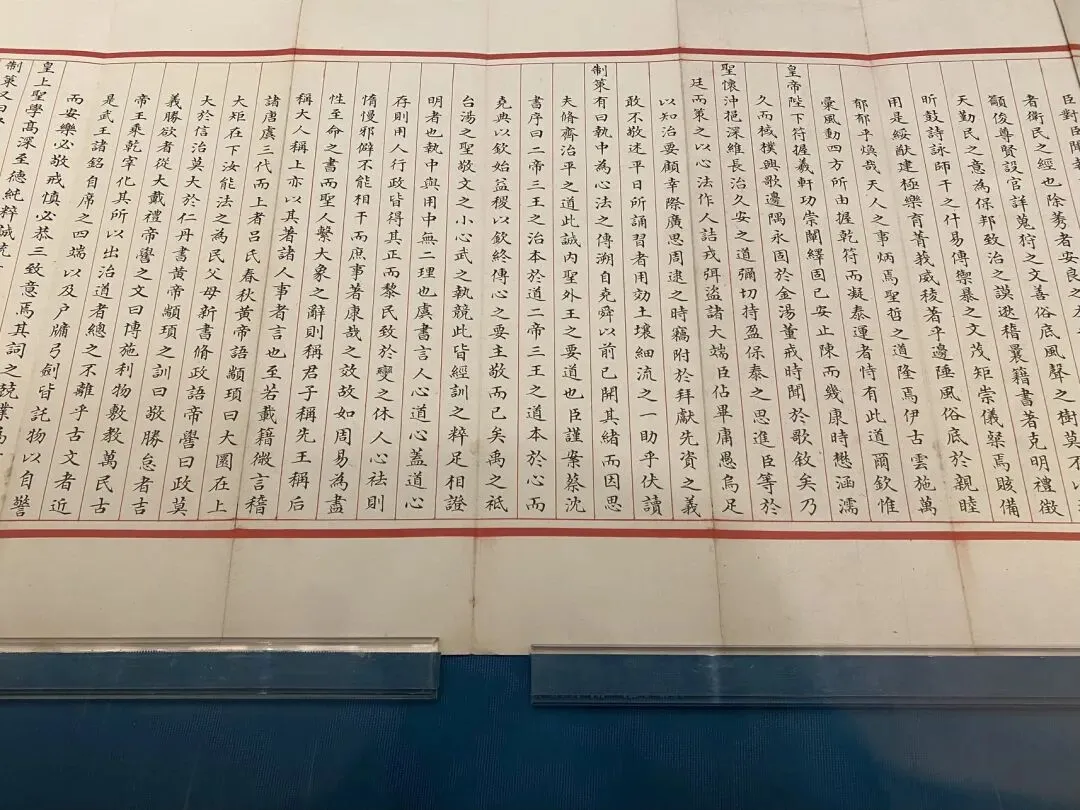 臣對臣聞
者衛民之經也除莠者安良之
顓俊尊賢設官詳蒐狩之文善俗底風聲之樹莫不
天勤民之意為保邦致治之謨逖稽曩籍書著克明禮徴
昕鼓詩詠師干之什易傳禦暴之文茂矩崇儀粲焉賅備
用是綏猷建極樂育菁莪威稜著乎邊陲風俗底於親睦
郁郁乎煥哉天人之事炳焉聖哲之道隆焉伊古雲施萬
彙風動四方所由握乾符而凝泰運者恃有此道爾欽惟
皇帝陛下符握羲軒功崇闡繹固已安止陳而幾康時懋涵濡
久而棫樸興歌邊隅永固於金湯董戒時聞於歌敘矣乃
聖懷沖挹深維長治久安之道彌切持盈保泰之思進臣等於
廷而策之以心法作人詰戎弭盜諸大端臣佔畢庸愚烏足
以知治要顧幸際廣思周逮之時竊附於拜獻先資之義
敢不敬述平日所誦習者用効土壤細流之一助乎伏讀
制策有曰執中為心法之傳溯自堯舜以前已開其緒而因思
夫脩齊治平之道此誠內聖外王之要道也臣謹案蔡沈
書序曰二帝三王之治本於道二帝三王之道本於心而
堯典以欽始益稷以欽終傳心之要主敬而已矣禹之祗
台湯之聖敬文之小心武之執競此皆經訓之粹足相證
明者也執中與用中無二理也虞書言人心道心蓋道心
存則用人行政皆得其正而黎民致於變之休人心祛則
惰慢邪僻不能相干而庶事著康哉之效故如周易為盡
性至命之書而聖人繫大象之辭則稱君子稱先王稱后
稱大人稱上亦以其著諸人事者言也至若載籍微言稽
諸唐虞三代而上者呂氏春秋黃帝語顓頊曰大圜在上
大矩在下汝能法之為民父母新書脩政語帝嚳曰政莫
大於信治莫大於仁丹書黃帝顓頊之訓曰敬勝怠者吉
義勝欲者從大戴禮帝嚳之文曰博施利物敷教萬民古
帝王乘乾宰化其所以出治道者總之不離乎古文者近
是武王諸銘自席之四端以及戶牖弓劍皆託物以自警
而安樂必敬戒慎必恭三致意焉其詞之兢業為
皇上聖學高深至德純粹誠
制策又曰